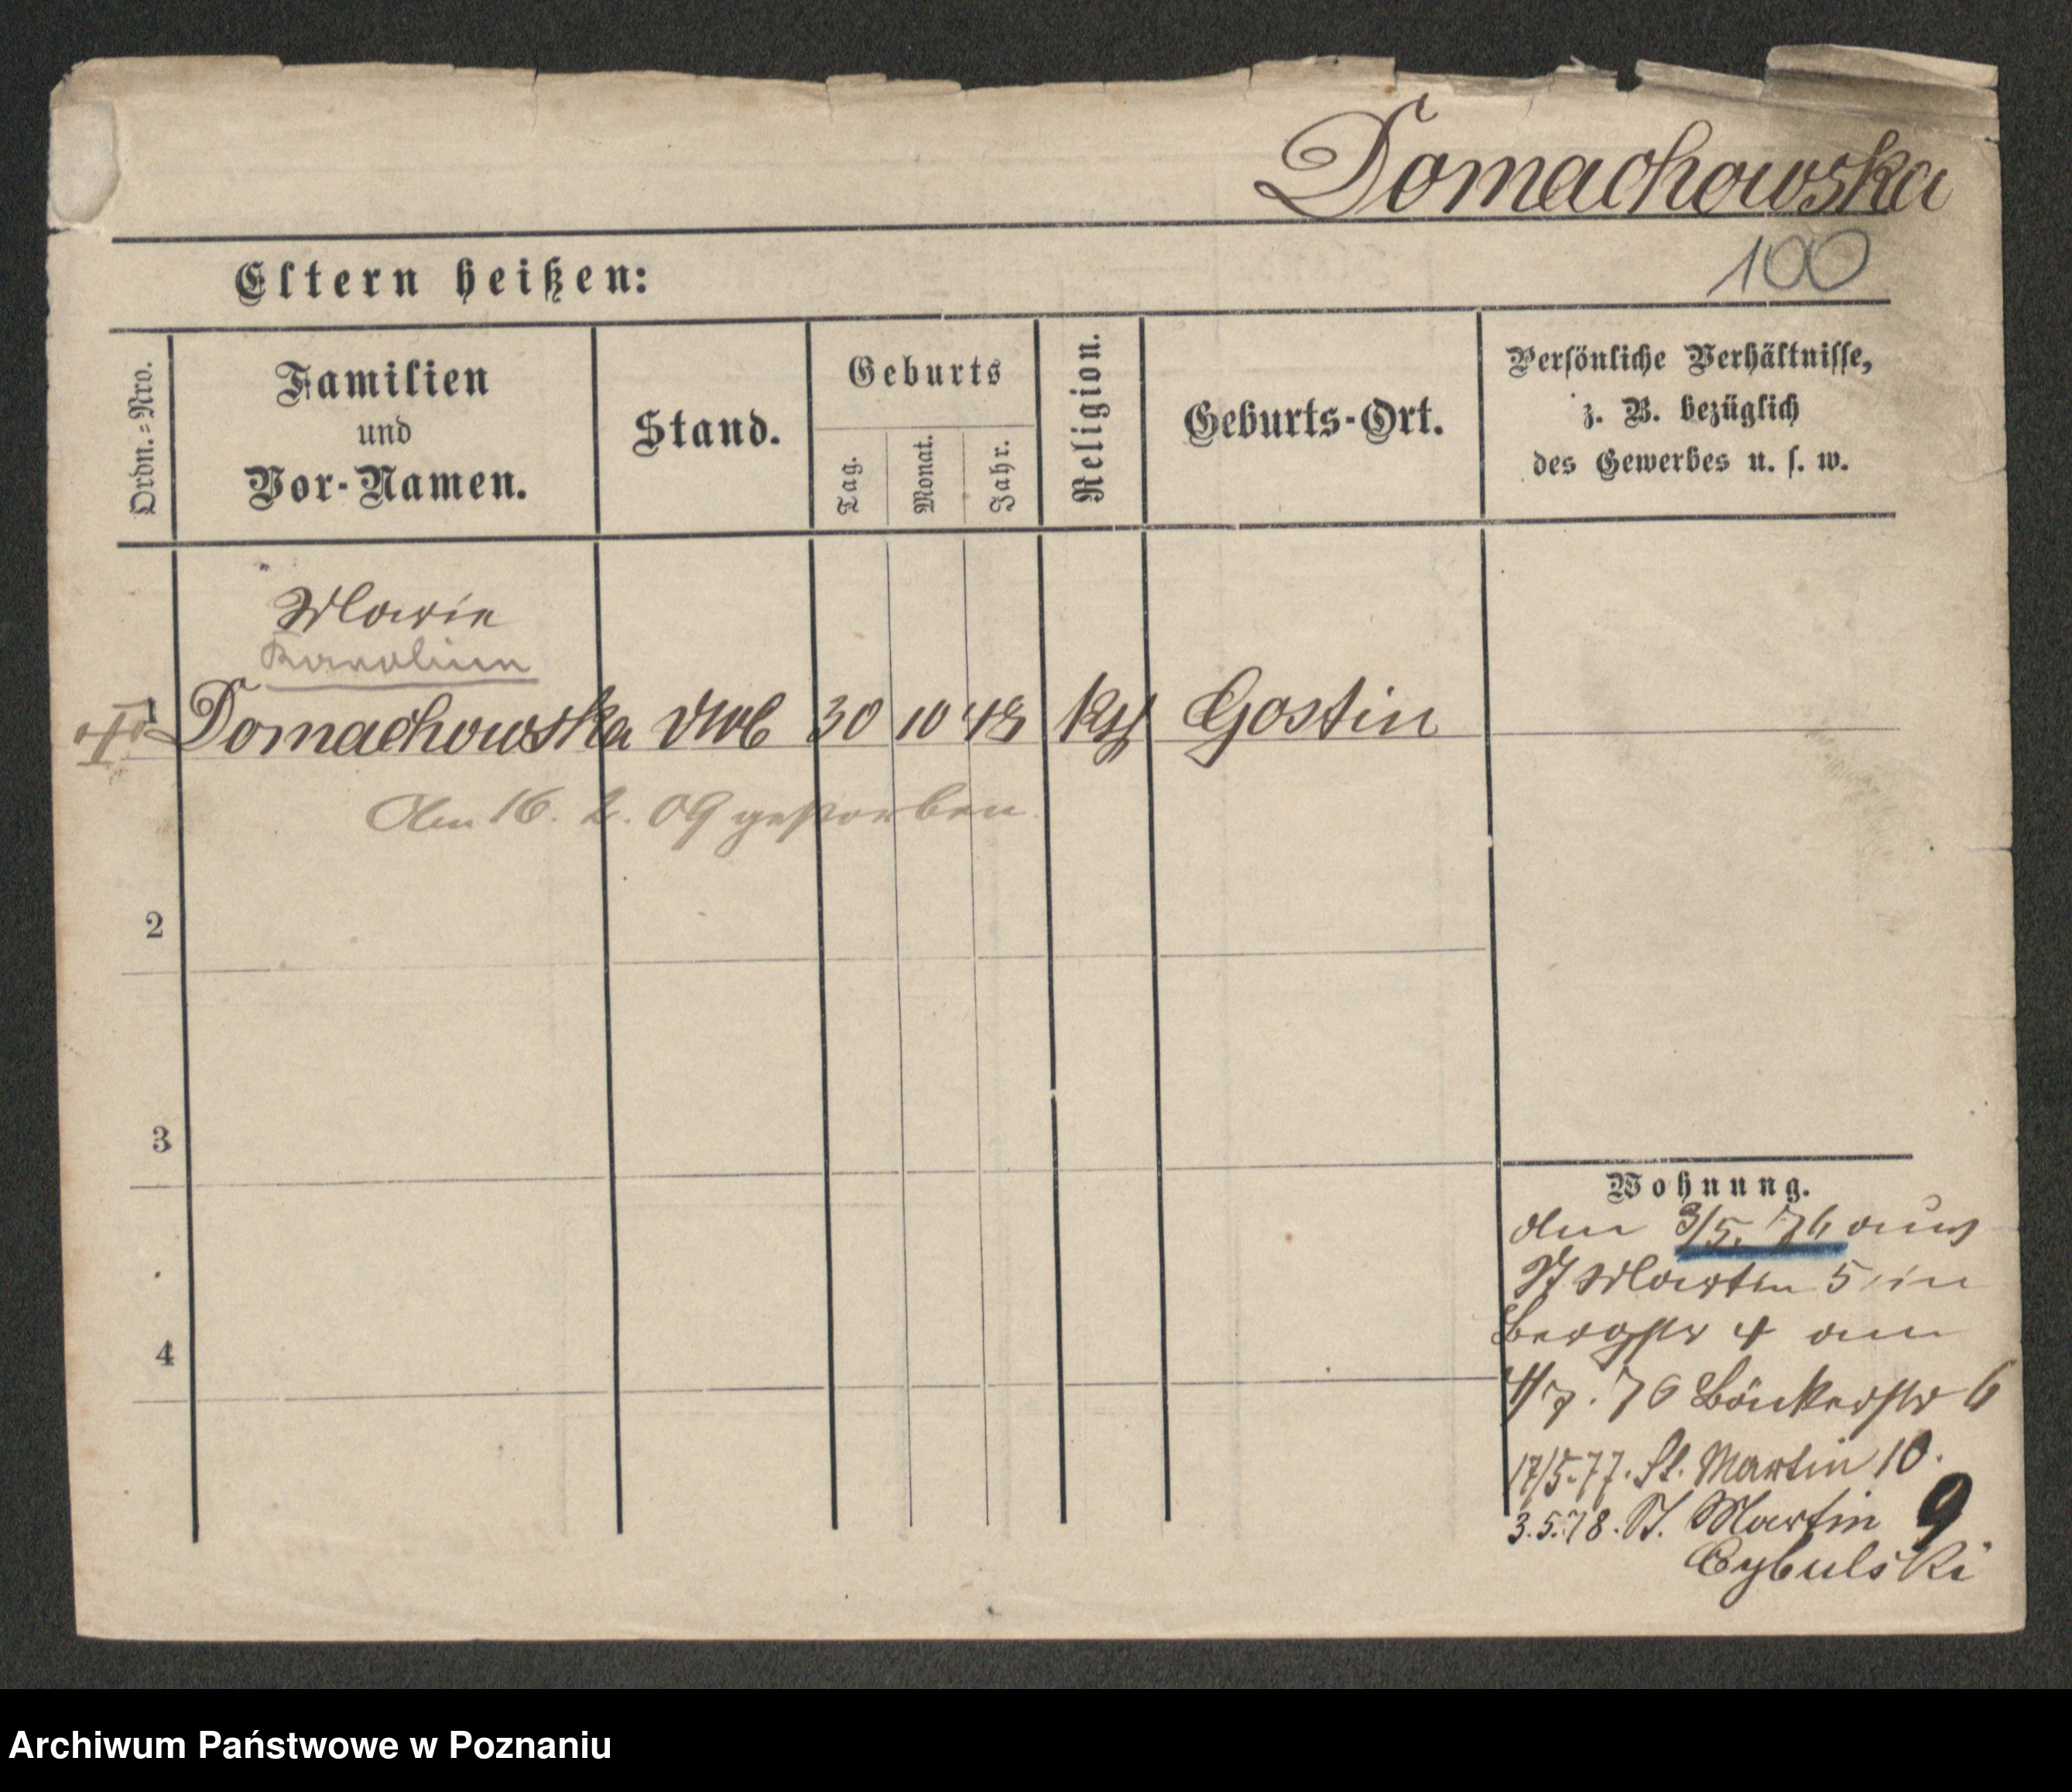 Domachowska
100
Eltern heißen:
Ordn.-Nro.
Familien
und
Vor-Namen.
Stand.
Geburts
Tag.
Monat.
Jahr.
Religion.
Geburts-Ort.
Persönliche Verhältnisse,
z. B. bezüglich
des Gewerbes u. s. w.
Marie
Karoline
1 Domachowska 30 10 48 kth Gostin
Am 16. 2. 09 gestorben.
2
3
4
Wohnung.
den 3/5. 76 aus
St Martin 5 in
Bergstr 4 am
7. 76 Bäckerstr 6
17/5.77. St. Martin 10.
3.5.78. St. Martin 9
Cybulski
Archiwum Państwowe w Poznaniu